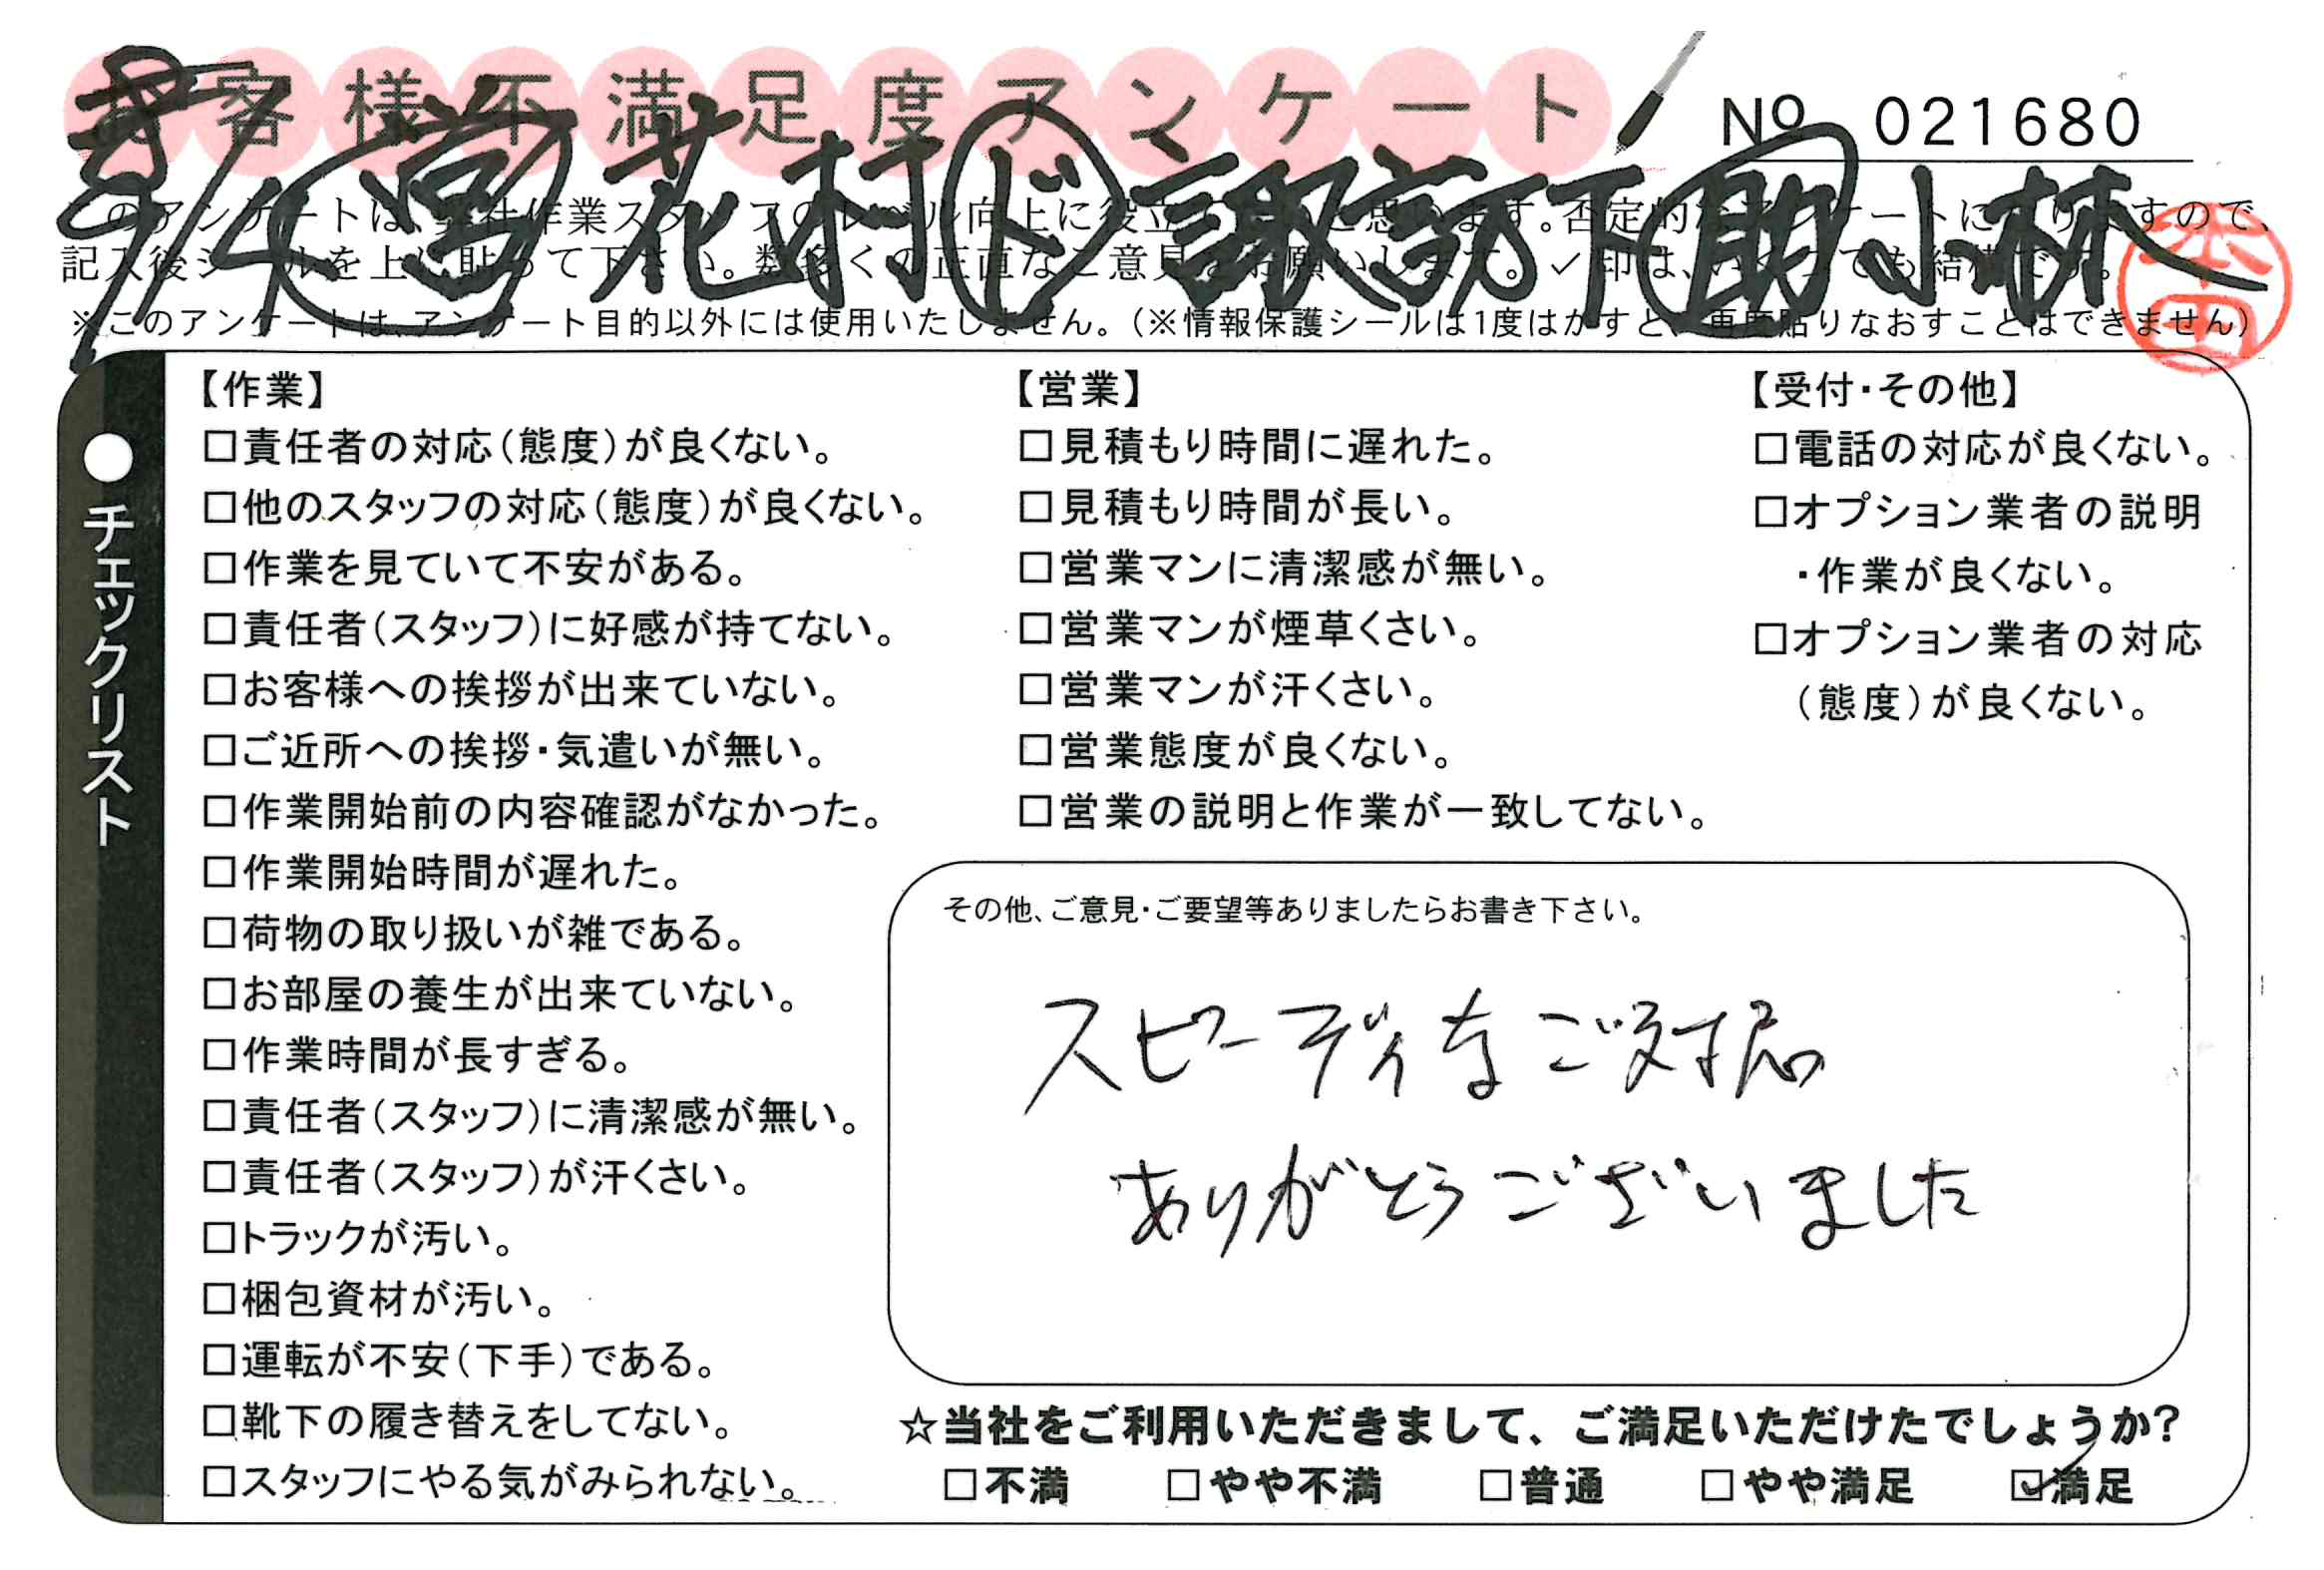 お客様不満足度アンケート
No 021680
9/4 営 花村 ド 諏訪下 助 小林
このアンケートは、弊社作業スタッフのレベル向上に役立てたいと思います。否定的なアンケートになりますので、
記入後シールを上に貼って下さい。数多くの正直なご意見をお願いします。✓印は、いくつでも結構です。
※このアンケートは、アンケート目的以外には使用いたしません。(※情報保護シールは1度はがすと、再度貼りなおすことはできません)
●チェックリスト
【作業】
□責任者の対応(態度)が良くない。
□他のスタッフの対応(態度)が良くない。
□作業を見ていて不安がある。
□責任者(スタッフ)に好感が持てない。
□お客様への挨拶が出来ていない。
□ご近所への挨拶・気遣いが無い。
□作業開始前の内容確認がなかった。
□作業開始時間が遅れた。
□荷物の取り扱いが雑である。
□お部屋の養生が出来ていない。
□作業時間が長すぎる。
□責任者(スタッフ)に清潔感が無い。
□責任者(スタッフ)が汗くさい。
□トラックが汚い。
□梱包資材が汚い。
□運転が不安(下手)である。
□靴下の履き替えをしてない。
□スタッフにやる気がみられない。
【営業】
□見積もり時間に遅れた。
□見積もり時間が長い。
□営業マンに清潔感が無い。
□営業マンが煙草くさい。
□営業マンが汗くさい。
□営業態度が良くない。
□営業の説明と作業が一致してない。
【受付・その他】
□電話の対応が良くない。
□オプション業者の説明
・作業が良くない。
□オプション業者の対応
(態度)が良くない。
その他、ご意見・ご要望等ありましたらお書き下さい。
スピーディなご対応
ありがとうございました
☆当社をご利用いただきまして、ご満足いただけたでしょうか?
□不満 □やや不満 □普通 □やや満足 ☑満足